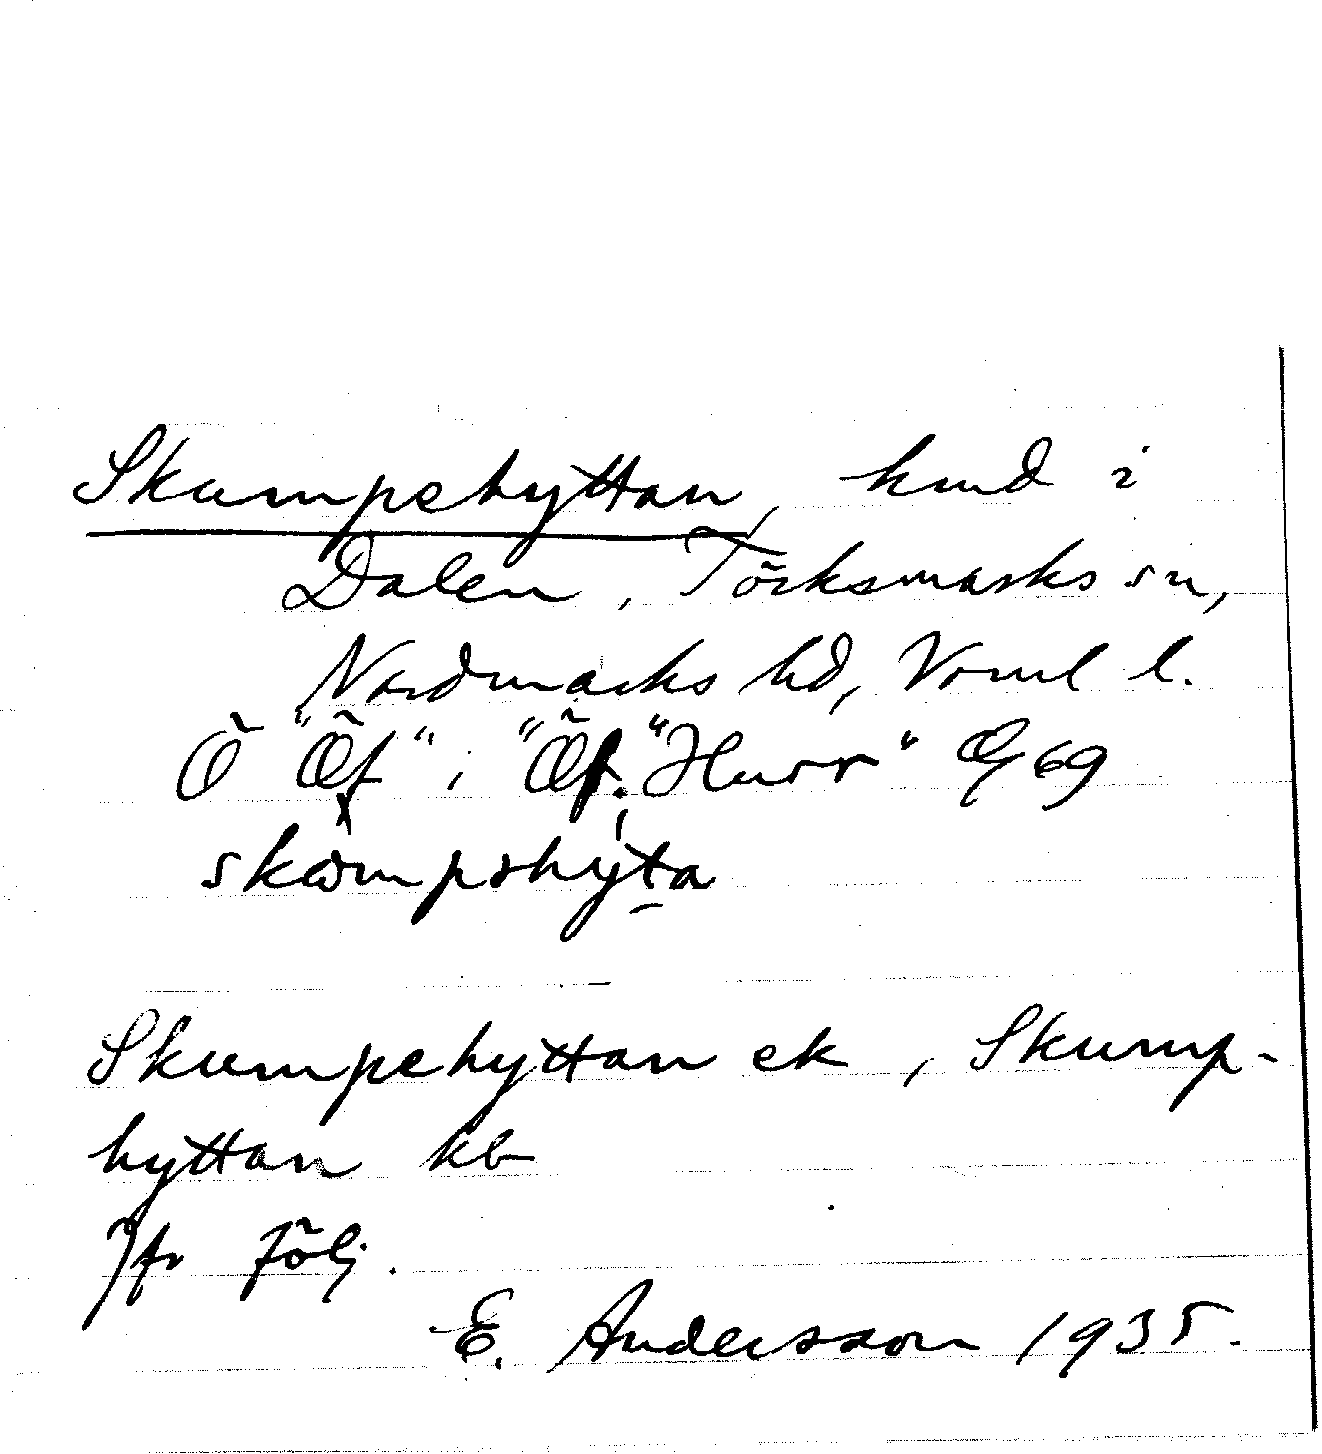 Skumpehyttan, hmd i
Dalen, Töcksmarks sn,
Nordmarks hd, Vrml l.
Ö "Öf" i "Öf. "Hurr"
skömpəhy̌ta
Skumpehyttan ek, Skump-
hyttan kb
Jfr följ.
E. Andersson 1935.